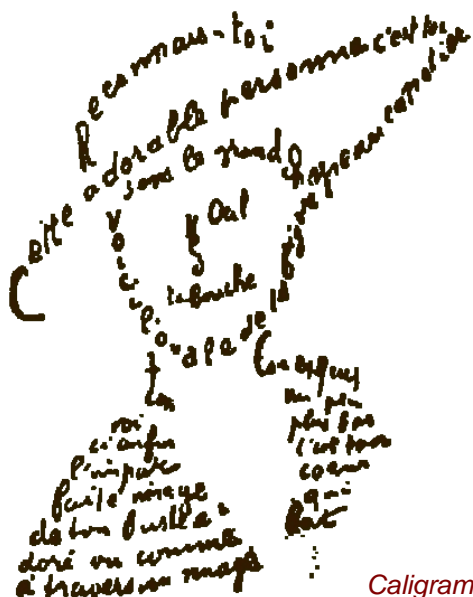 Reconnais-toi
Cette adorable personne c'est toi
sous le grand chapeau canotier
Oeil
ta bouche
Voici l'ovale de ta figure
ton
Cou exquis
voi
ci enfin
l'impar
faite image
de ton buste a
doré vu comme
à travers un nuage
un peu
plus bas
c'est ton
coeur
qui
bat
Caligram